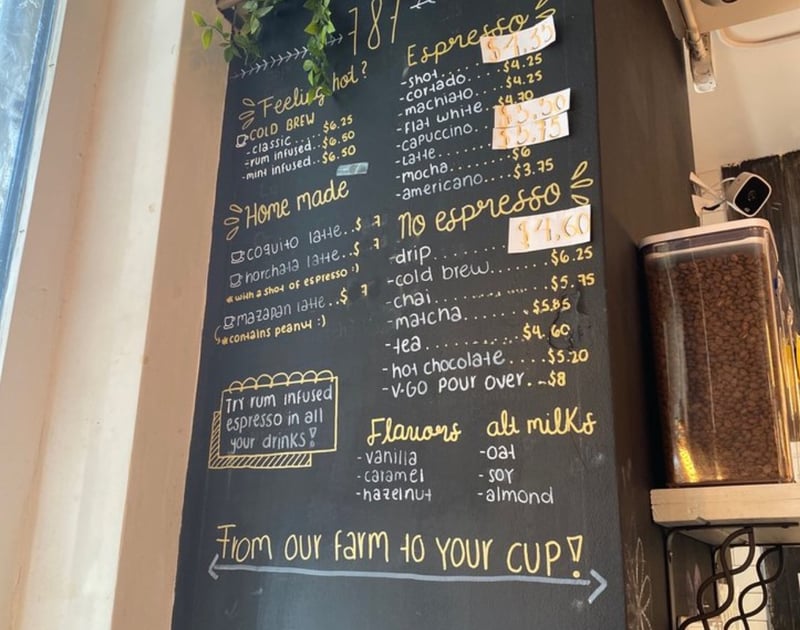 787
Feeling hot?
COLD BREW
-classic...$6.25
-rum infused..$6.50
-mint infused..$6.50
Home made
coquito latte..$7
horchata latte..$7
*with a shot of espresso :)
mazapan latte..$7
*contains peanut :)
Try rum infused
espresso in all
your drinks!
Espresso
-shot....$4.35
-cortado....$4.25
-machiato....$4.25
-flat white....$4.70
-capuccino....$5.50
-latte......$5.75
-mocha.......$6
-americano....$3.75
No espresso
-drip........$4.60
-cold brew.......$6.25
-chai............$5.75
-matcha........$5.85
-tea...........$4.60
-hot chocolate....$5.20
-V.GO pour over...$8
Flavors
-vanilla
-caramel
-hazelnut
alt milks
-oat
-soy
-almond
From our farm to your cup!